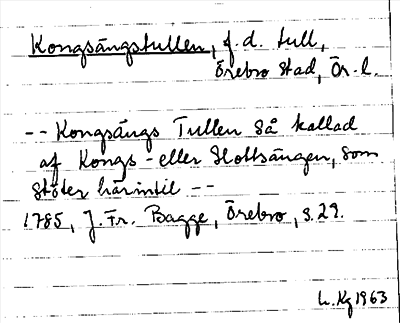 Kongsängstullen, f.d. tull,
Örebro stad, Ör. l.
-- Kongsängs Tullen så kallad
af Kongs- eller Slottsängen, som
stöter härintil --
1785, J. Fr. Bagge, Örebro, s. 29.
L. Kg 1963